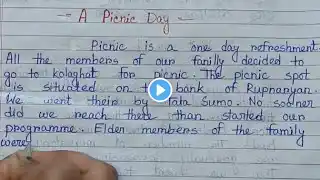 A Picnic Day
Picnic is a one day refreshment.
All the members of our fanilly decided to
go to kolaghat for picnic. The picnic spot
is situated on t bank of Rupnanyan.
We went their by Tata Sumo. No sooner
did we reach there than started our
programme. Elder members of the family
were